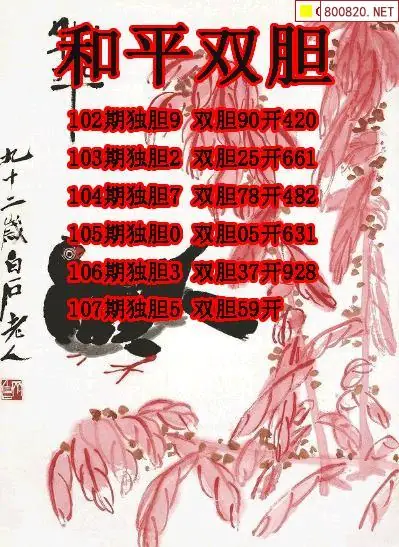 800820.NET
和平双胆
102期独胆9 双胆90开420
103期独胆2 双胆25开661
104期独胆7 双胆78开482
105期独胆0 双胆05开631
106期独胆3 双胆37开928
107期独胆5 双胆59开
九十二岁白石老人